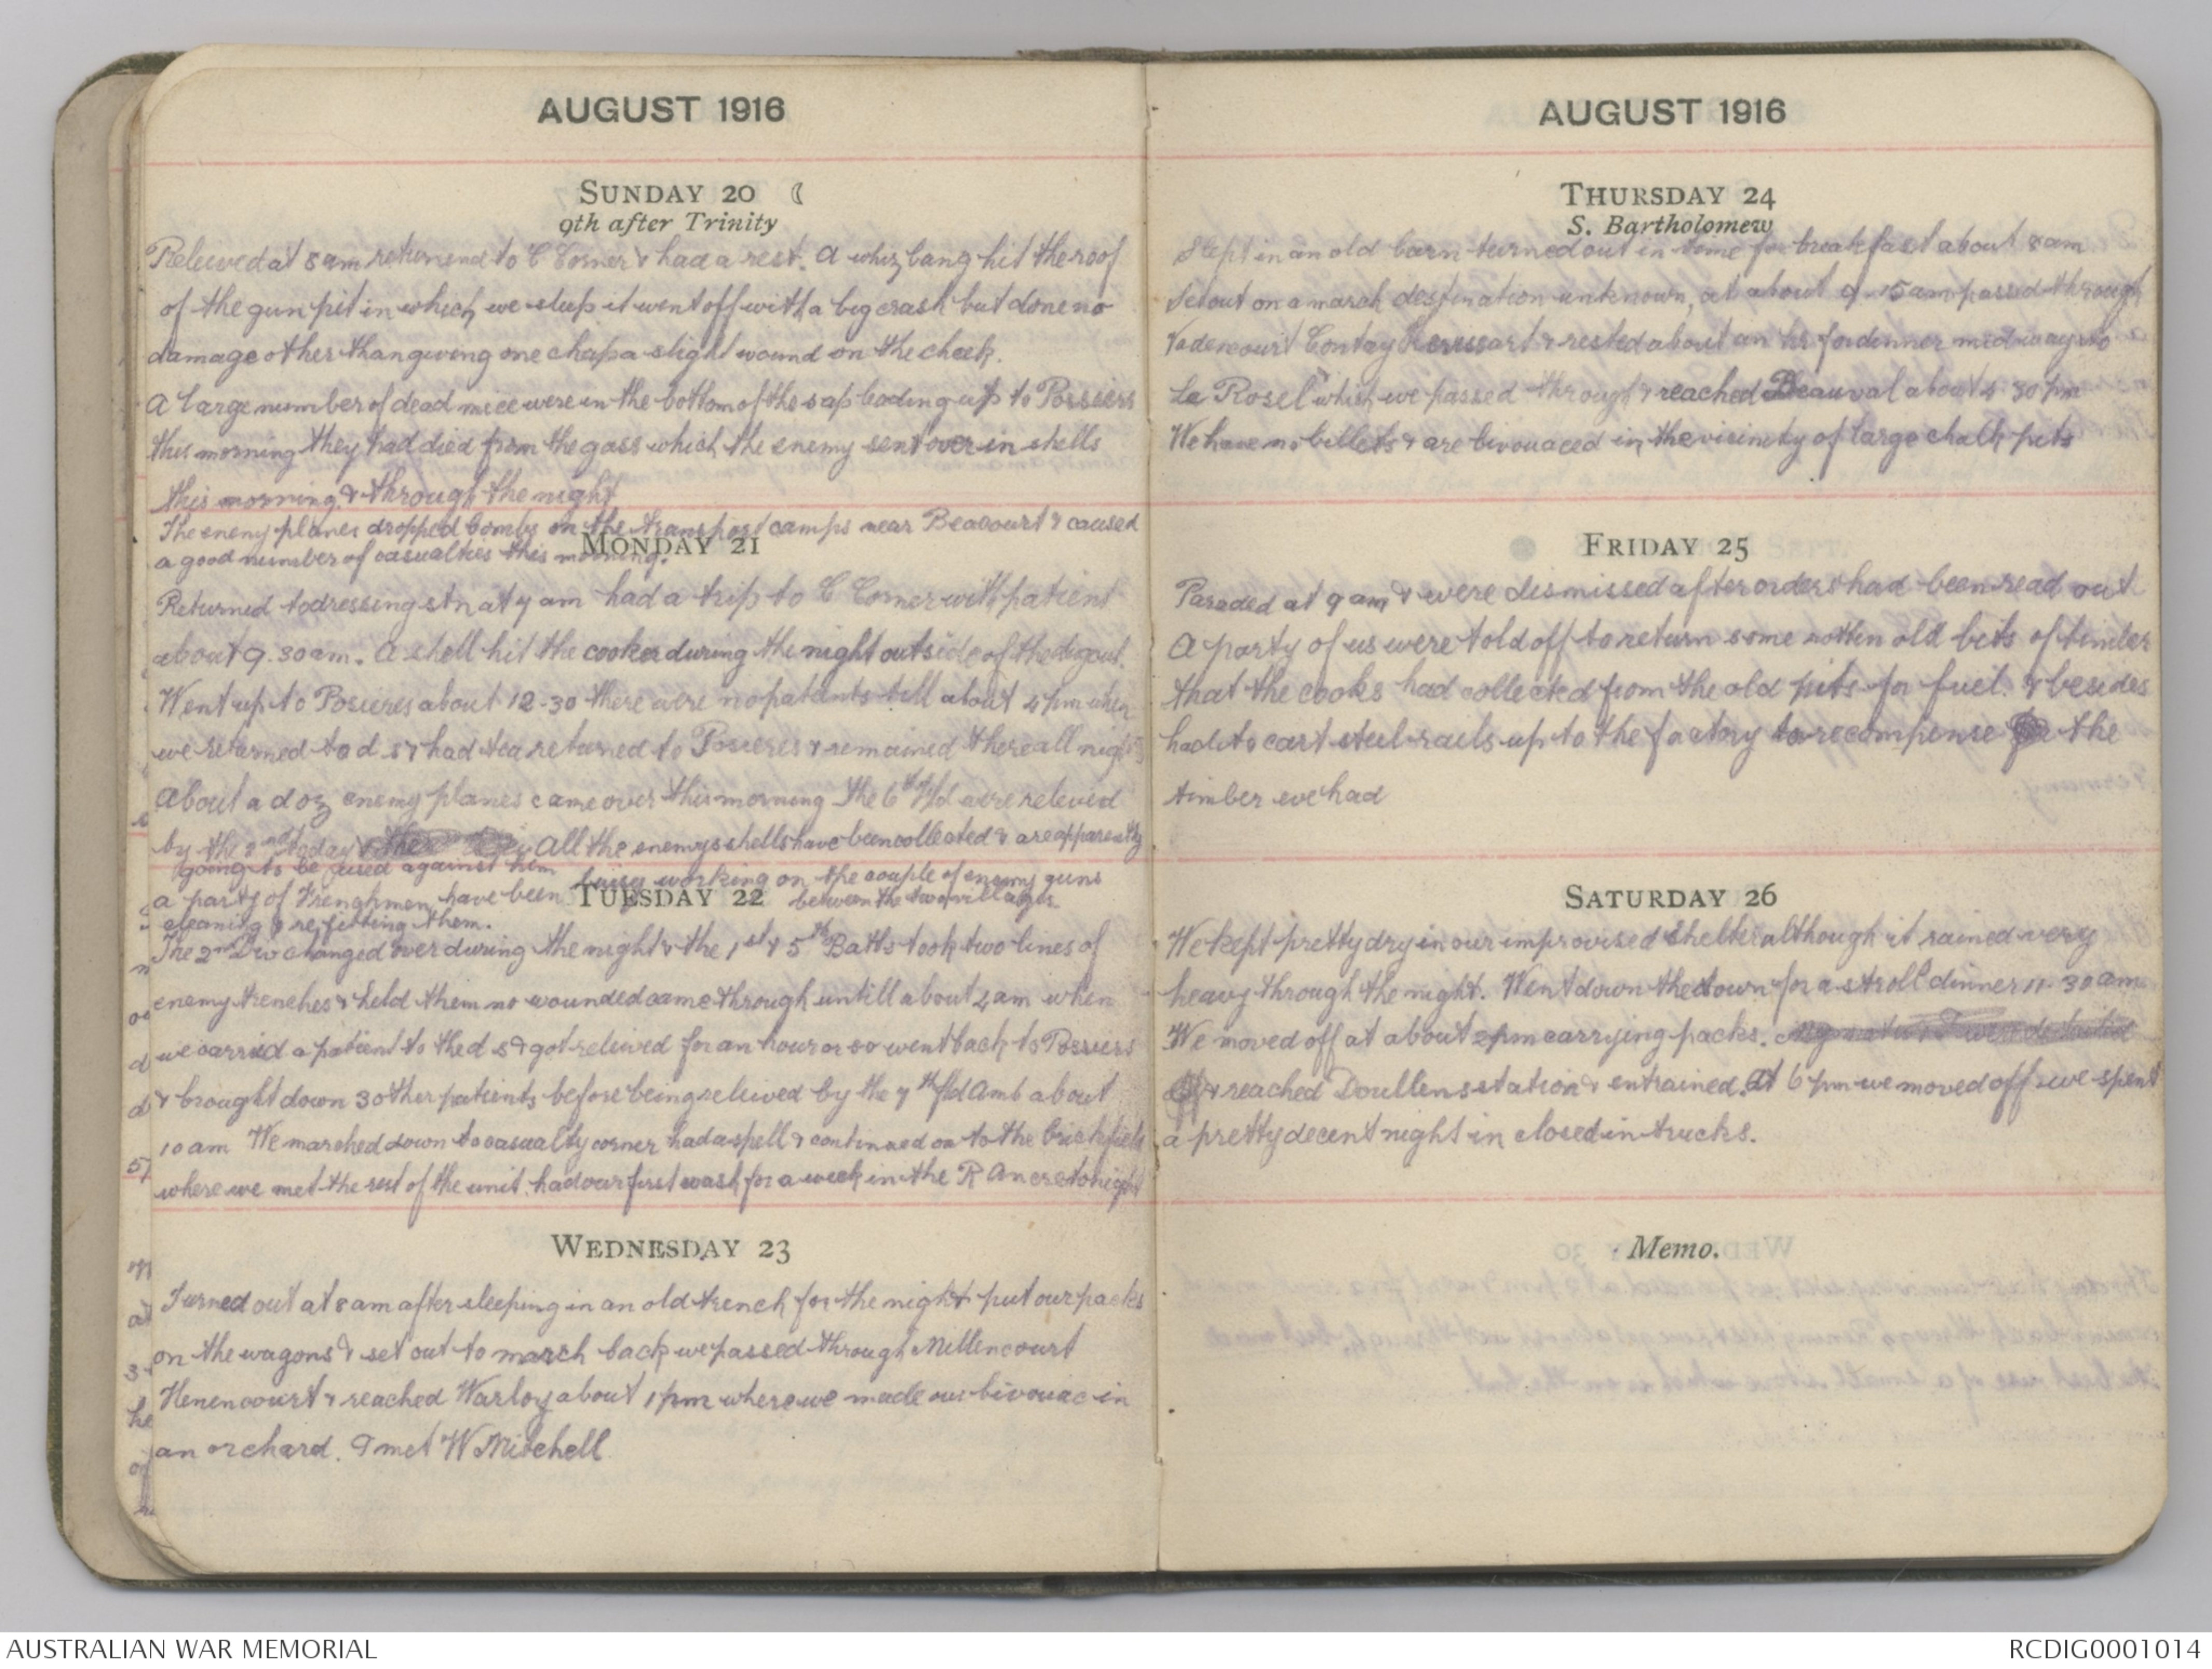 AUGUST 1916
SUNDAY 20
9th after Trinity
Releived at 8 am returnend to C Corner & had a rest. A whiz bang hit the roof
of the gun pit in which we sleep it went off with a big crash but done no
damage other than giving one chap a slight wound on the cheek.
A large number of dead mice were in the bottom of the sap leading up to Posiers
this morning they had died from the gass which the enemy sent over in shells
this morning & through the night
The enemy planes dropped bombs on the transport camps near Beacourt & caused
a good number of casualties this morning.
MONDAY 21
Returned to dressing stn at 7 am had a trip to C Corner with patient
about 9.30 am. A shell hit the cooker during the night outside of the dugout.
Went up to Posieres about 12-30 there were no patients till about 4 pm when
we returned to d s & had tea returned to Posieres & remained there all night
About a doz enemy planes came over this morning The 6th Fld were releived
by the 2nd today All the enemys shells have been collected & are apparently
going to be used against him
a party of Frenghmen have been busy working on the couple of enemy guns
between the two villages
cleaning & refitting them.
TUESDAY 22
The 2nd Div changed over during the night & the 1st & 5th Batts took two lines of
enemy trenches & held them no wounded came through untill about 2 am when
we carried a patient to the d s & got releived for an hour or so went back to Posiers
& brought down 3 other patients before being releived by the 7th fld Amb about
10 am We marched down to casualty corner had a spell & continued on to the brickfield
where we met the rest of the unit. had our first wash for a week in the R Ancre tonight
WEDNESDAY 23
Turned out at 8 am after sleeping in an old trench for the night & put our packs
on the wagons & set out to march back we passed through Millencourt
Henencourt & reached Warloy about 1 pm where we made our bivouac in
an orchard. I met W Mitchell
AUGUST 1916
THURSDAY 24
S. Bartholomew
Slept in an old barn turned out in time for breakfast about 8 am
Set out on a march destination unknown, at about 9-15 am passed through
Vadencourt Contay & rested about an hr for dinner midway to
La Rosel which we passed through & reached Beauval about 4 30 pm
We have no billets & are bivouaced in the visinity of large chalk pits
FRIDAY 25
Paraded at 9 am & were dismissed after orders had been read out
A party of us were told off to return some rotten old bits of timber
that the cooks had collected from the old pits for fuel. & besides
had to cart steel rails up to the factory to recompense the
timber we had
SATURDAY 26
We kept pretty dry in our improvised shelter although it rained very
heavy through the night. Went down the town for a stroll dinner 11-30 am
We moved off at about 2 pm carrying packs.
& reached Doullens station & entrained. At 6 pm we moved off & we spent
a pretty decent night in closed in trucks.
Memo.
AUSTRALIAN WAR MEMORIAL
RCDIG0001014